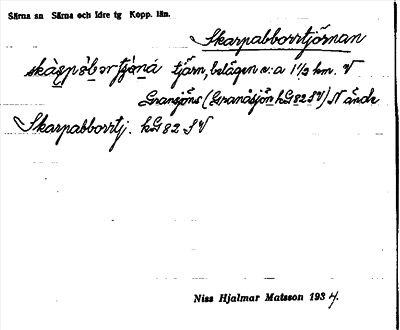 Särna sn Särna och Idre tg Kopp. län.
Skarpabborrtjörnan
tjärn, belägen c:a 1½ km. V
Gransjöns (Granåsjön kG 82 SV) N ände
Skarpabborrtj. kG 82 SV
Niss Hjalmar Matsson 1934.